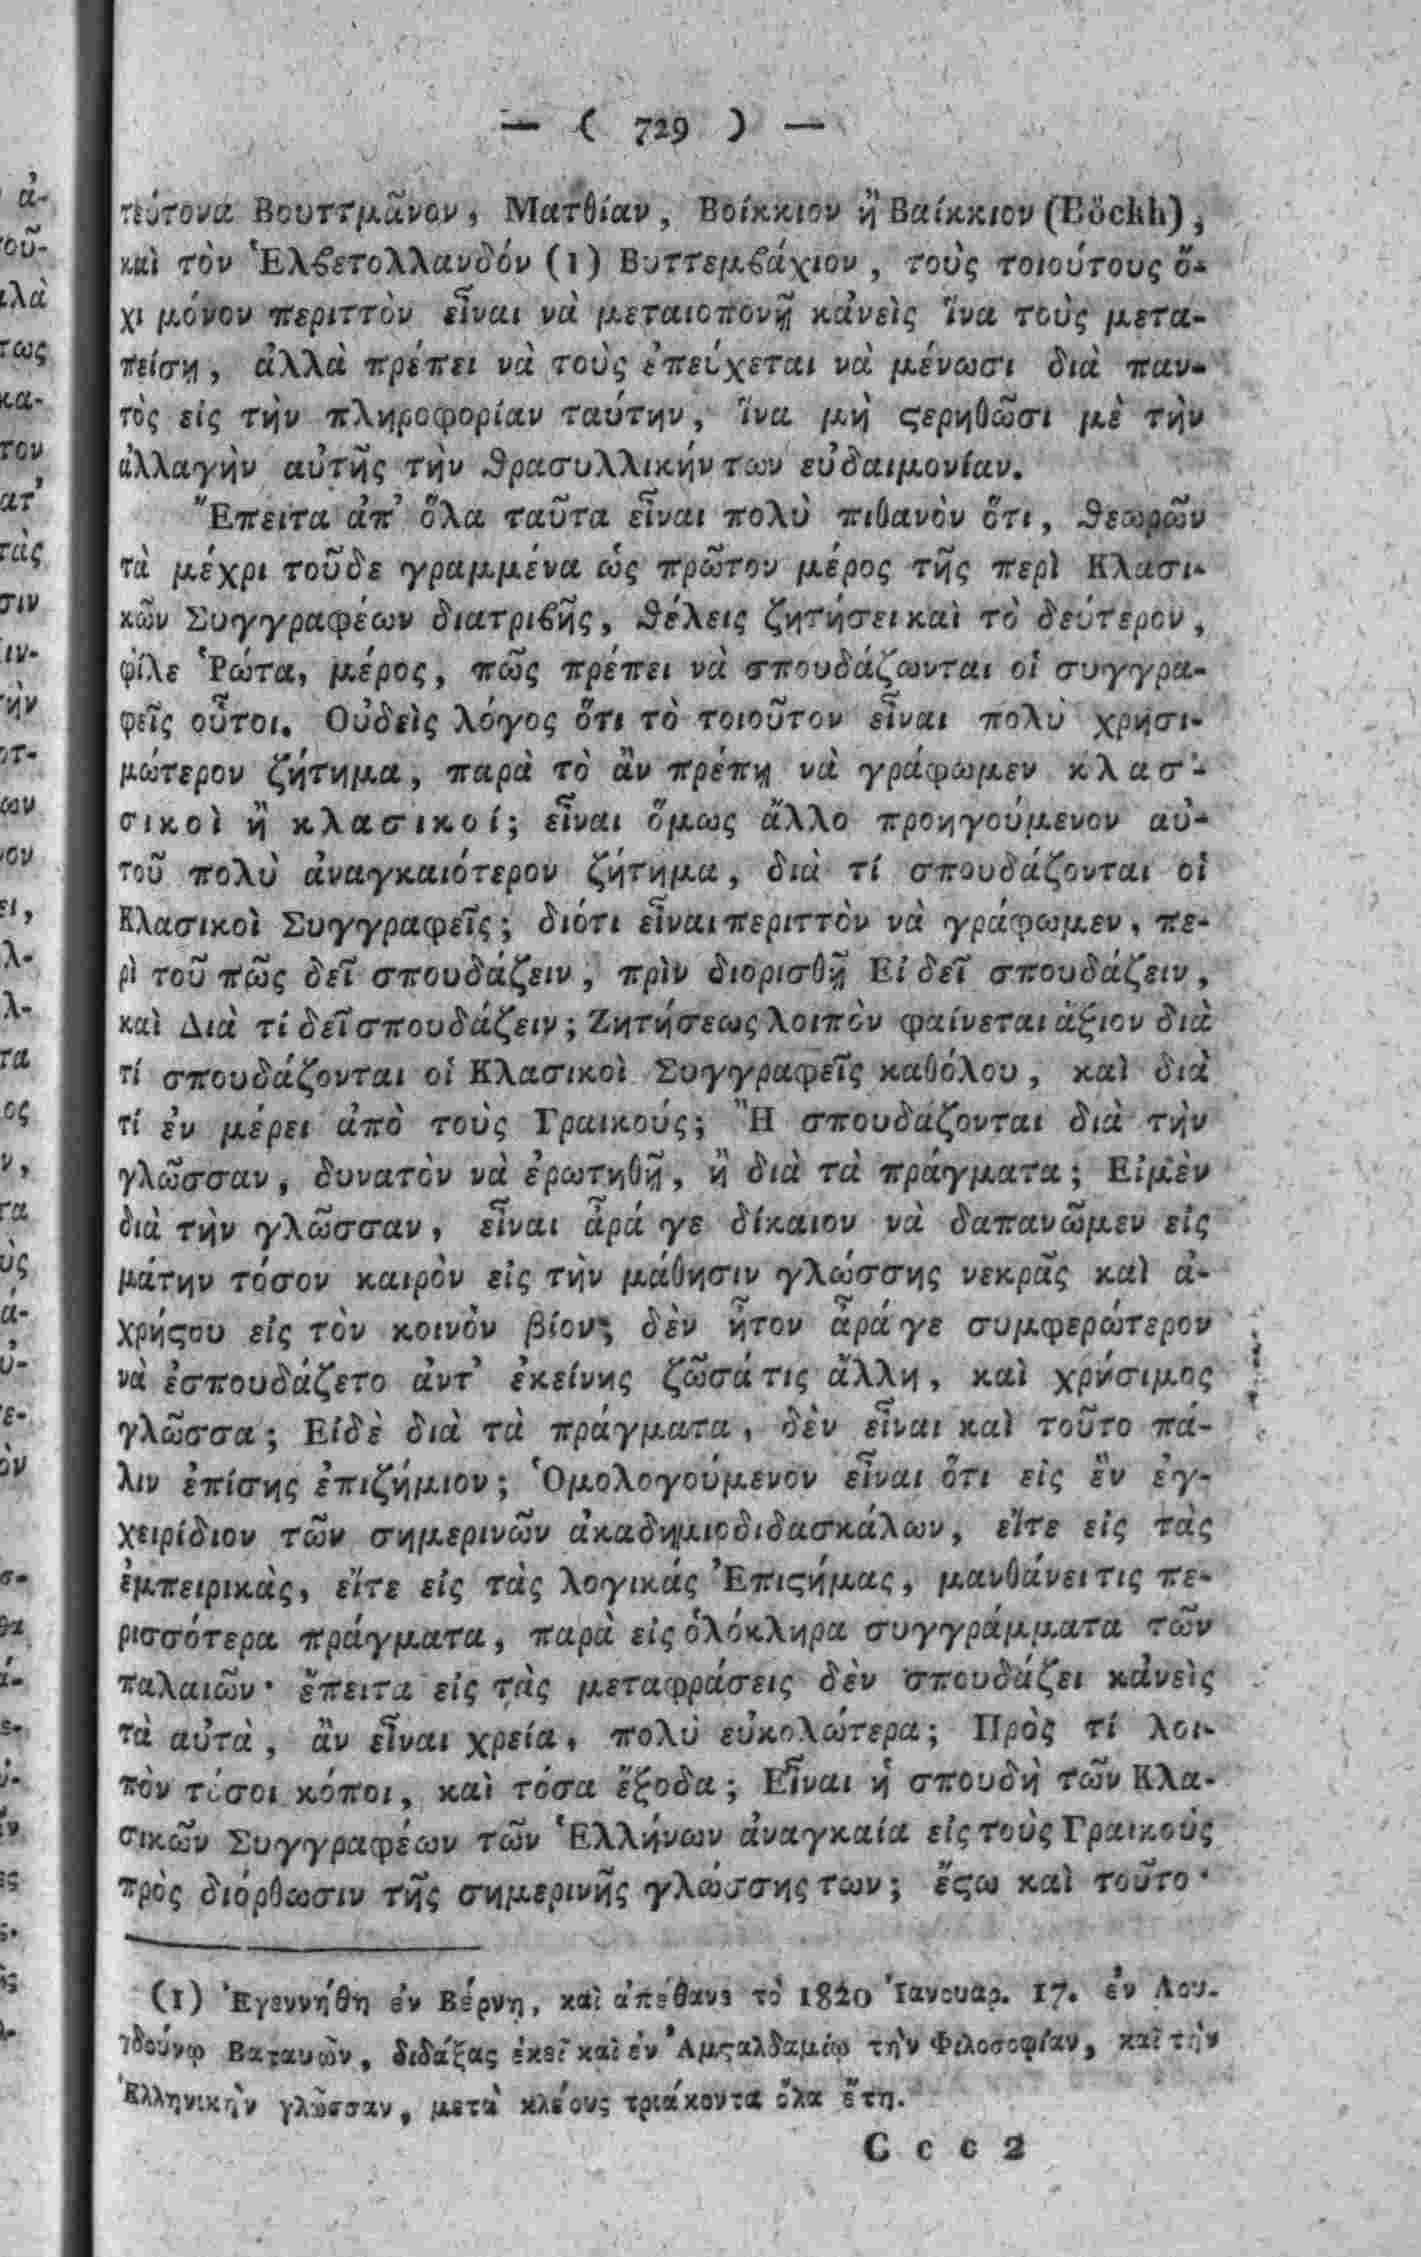 — ( 729 ) —
τεύτονα Βουττμᾶνον, Ματθίαν, Βοίκκιον ἢ Βαίκκιον (Böckh),
καὶ τὸν Ἑλβετολλανδόν (1) Βυττεμβάχιον, τοὺς τοιούτους ὄ-
χι μόνον περιττὸν εἶναι νὰ μεταιοπονῇ κἀνεὶς ἵνα τοὺς μετα-
πείσῃ, ἀλλὰ πρέπει νὰ τοὺς ἐπεύχεται νὰ μένωσι διὰ παν-
τὸς εἰς τὴν πληροφορίαν ταύτην, ἵνα μὴ ϛερηθῶσι μὲ τὴν
ἀλλαγὴν αὐτῆς τὴν Θρασυλλικήν των εὐδαιμονίαν.
Ἔπειτα ἀπ' ὅλα ταῦτα εἶναι πολὺ πιθανὸν ὅτι, θεωρῶν
τὰ μέχρι τοῦδε γραμμένα ὡς πρῶτον μέρος τῆς περὶ Κλασι-
κῶν Συγγραφέων διατριβῆς, θέλεις ζητήσει καὶ τὸ δεύτερον,
φίλε Ῥώτα, μέρος, πῶς πρέπει νὰ σπουδάζωνται οἱ συγγρα-
φεῖς οὗτοι. Οὐδεὶς λόγος ὅτι τὸ τοιοῦτον εἶναι πολὺ χρησι-
μώτερον ζήτημα, παρὰ τὸ ἂν πρέπῃ νὰ γράφωμεν κλασ-
σικοὶ ἢ κλασικοί; εἶναι ὅμως ἄλλο προηγούμενον αὐ-
τοῦ πολὺ ἀναγκαιότερον ζήτημα, διὰ τί σπουδάζονται οἱ
Κλασικοὶ Συγγραφεῖς; διότι εἶναι περιττὸν νὰ γράφωμεν, πε-
ρὶ τοῦ πῶς δεῖ σπουδάζειν, πρὶν διορισθῇ Εἰ δεῖ σπουδάζειν,
καὶ Διὰ τί δεῖ σπουδάζειν; Ζητήσεως λοιπὸν φαίνεται ἄξιον διὰ
τί σπουδάζονται οἱ Κλασικοὶ Συγγραφεῖς καθόλου, καὶ διὰ
τί ἐν μέρει ἀπὸ τοὺς Γραικούς; Ἢ σπουδάζονται διὰ τὴν
γλῶσσαν, δυνατὸν νὰ ἐρωτηθῇ, ἢ διὰ τὰ πράγματα; Εἰμὲν
διὰ τὴν γλῶσσαν, εἶναι ἆρά γε δίκαιον νὰ δαπανῶμεν εἰς
μάτην τόσον καιρὸν εἰς τὴν μάθησιν γλώσσης νεκρᾶς καὶ ἀ-
χρήϛου εἰς τὸν κοινὸν βίον; δὲν ἦτον ἆρά γε συμφερώτερον
νὰ ἐσπουδάζετο ἀντ' ἐκείνης ζῶσά τις ἄλλη, καὶ χρήσιμος
γλῶσσα; Εἰδὲ διὰ τὰ πράγματα, δὲν εἶναι καὶ τοῦτο πά-
λιν ἐπίσης ἐπιζήμιον; Ὁμολογούμενον εἶναι ὅτι εἰς ἓν ἐγ-
χειρίδιον τῶν σημερινῶν ἀκαδημιοδιδασκάλων, εἴτε εἰς τὰς
ἐμπειρικὰς, εἴτε εἰς τὰς λογικὰς Ἐπιϛήμας, μανθάνει τις πε-
ρισσότερα πράγματα, παρὰ εἰς ὁλόκληρα συγγράμματα τῶν
παλαιῶν· ἔπειτα εἰς τὰς μεταφράσεις δὲν σπουδάζει κἀνεὶς
τὰ αὐτὰ, ἂν εἶναι χρεία, πολὺ εὐκολώτερα; Πρὸς τί λοι-
πὸν τόσοι κόποι, καὶ τόσα ἔξοδα; Εἶναι ἡ σπουδὴ τῶν Κλα-
σικῶν Συγγραφέων τῶν Ἑλλήνων ἀναγκαία εἰς τοὺς Γραικοὺς
πρὸς διόρθωσιν τῆς σημερινῆς γλώσσης των; ἔϛω καὶ τοῦτο·
(1) Ἐγεννήθη ἐν Βέρνῃ, καὶ ἀπέθανε τὸ 1820 Ἰανουαρ. 17. ἐν Λου-
γδούνῳ Βαταυῶν, διδάξας ἐκεῖ καὶ ἐν Ἀμϛαλδαμίῳ τὴν Φιλοσοφίαν, καὶ τὴν
Ἑλληνικὴν γλῶσσαν, μετὰ κλέους τριάκοντα ὅλα ἔτη.
C c c 2